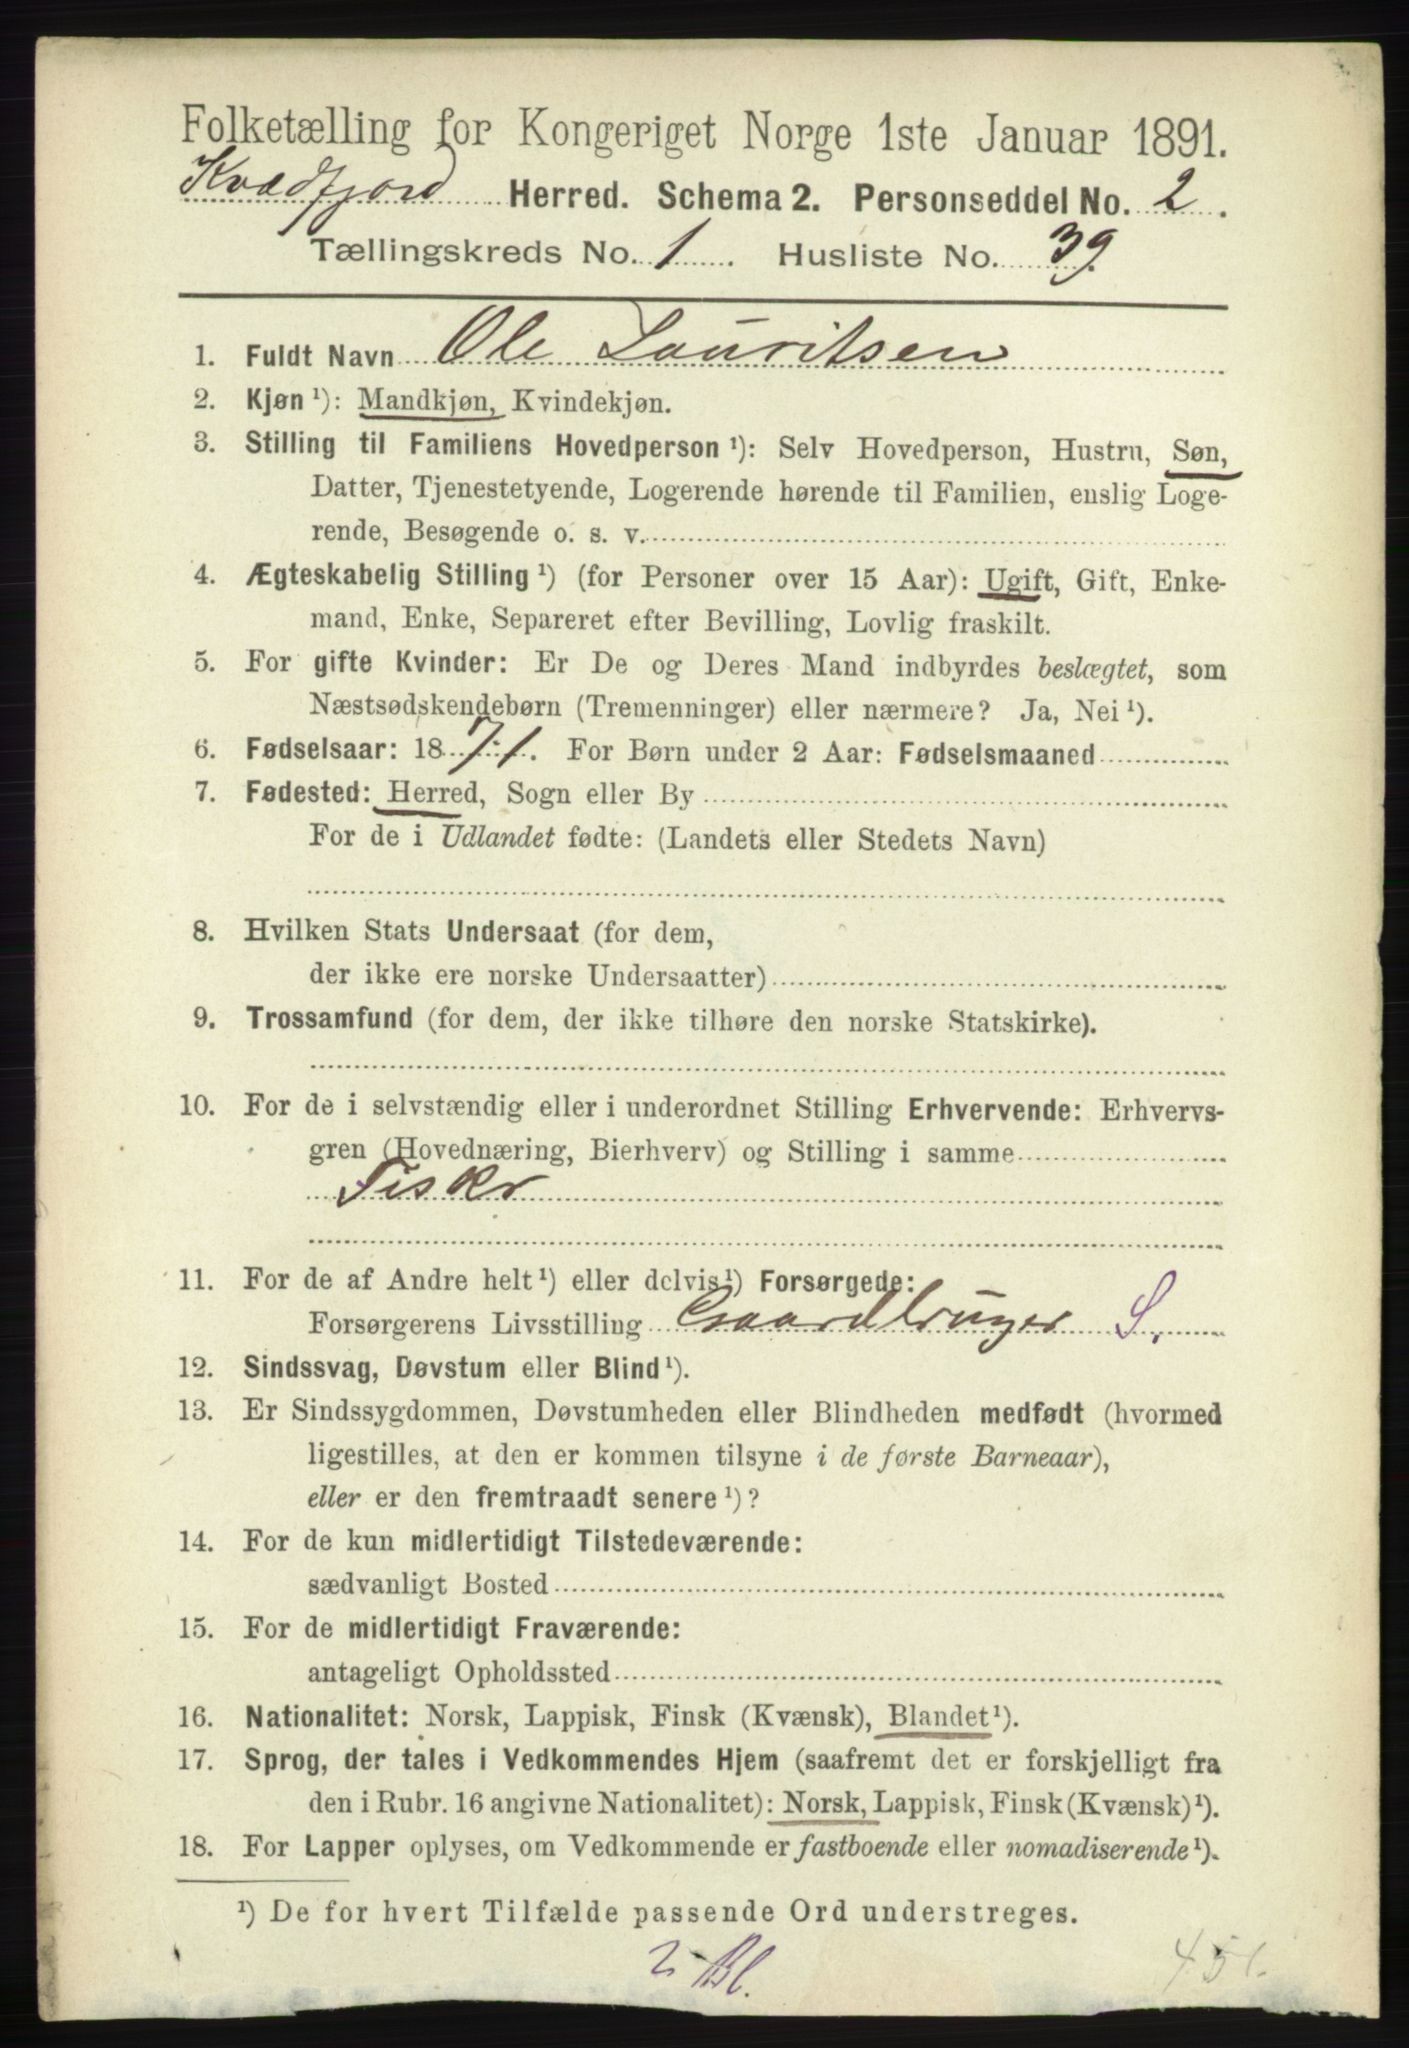 Folketælling for Kongeriget Norge 1ste Januar 1891.
Kvædfjord Herred. Schema 2. Personseddel No. 2.
Tællingskreds No. 1. Husliste No. 39.
1. Fuldt Navn Ole Lauritsen
2. Kjøn ¹): Mandkjøn, Kvindekjøn.
3. Stilling til Familiens Hovedperson ¹): Selv Hovedperson, Hustru, Søn,
Datter, Tjenestetyende, Logerende hørende til Familien, enslig Loge-
rende, Besøgende o. s. v.
4. Ægteskabelig Stilling ¹) (for Personer over 15 Aar): Ugift, Gift, Enke-
mand, Enke, Separeret efter Bevilling, Lovlig fraskilt.
5. For gifte Kvinder: Er De og Deres Mand indbyrdes beslægtet, som
Næstsødskendebørn (Tremenninger) eller nærmere? Ja, Nei ¹).
6. Fødselsaar: 1871. For Børn under 2 Aar: Fødselsmaaned
7. Fødested: Herred, Sogn eller By
For de i Udlandet fødte: (Landets eller Stedets Navn)
8. Hvilken Stats Undersaat (for dem,
der ikke ere norske Undersaatter)
9. Trossamfund (for dem, der ikke tilhøre den norske Statskirke).
10. For de i selvstændig eller i underordnet Stilling Erhvervende: Erhvervs-
gren (Hovednæring, Bierhverv) og Stilling i samme
Fiskr
11. For de af Andre helt ¹) eller delvis ¹) Forsørgede:
Forsørgerens Livsstilling Gaardbruger S.
12. Sindssvag, Døvstum eller Blind ¹).
13. Er Sindssygdommen, Døvstumheden eller Blindheden medfødt (hvormed
ligestilles, at den er kommen tilsyne i de første Barneaar),
eller er den fremtraadt senere ¹)?
14. For de kun midlertidigt Tilstedeværende:
sædvanligt Bosted
15. For de midlertidigt Fraværende:
antageligt Opholdssted
16. Nationalitet: Norsk, Lappisk, Finsk (Kvænsk), Blandet ¹).
17. Sprog, der tales i Vedkommendes Hjem (saafremt det er forskjelligt fra
den i Rubr. 16 angivne Nationalitet): Norsk, Lappisk, Finsk (Kvænsk) ¹).
18. For Lapper oplyses, om Vedkommende er fastboende eller nomadiserende ¹).
¹) De for hvert Tilfælde passende Ord understreges.
2 Bl. 451.